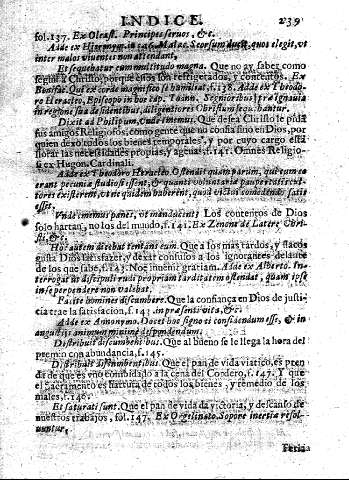 INDICE. 239
fol.137. Ex Oleast. Principes seruos, &c.
Adde ex Hieronym. in ca6. Malac. Seorsum ducit, quos elegit, vt
inter malos viuentes non attendant,
Et sequebatur eum multitudo magna. Que no ay saber como
seguir a Christo, porque ellos son refrigerados, y contentos. Ex
Bonifac. Qui ex corde magnifico se humiliat, f.138. Adde ex Theodo-
ro Heracleo, Episcopo in hoc cap. Ioann. Segnioribus, præ ignauia
in regione sua desidentibus, diligentiores Christum sequebantur.
Dixit ad Philippum, vnde ememus. Que desea Christo le pida
sus amigos Religiosos, como gente que no confia sino en Dios, por
quien dexo todos los bienes temporales, y por cuyo cargo està
llorar las necessidades propias, y agenas, f.141. Omnes Religio-
si ex Hugon. Cardinali.
Adde ex Theodoro Heracleo. Ostendit quam parum, qui tum e-
erant pecuniæ studiosi essent, & quanti voluntariæ paupertatis cul-
tores existerent, vt ne quidem haberent, quod
esse,
Vnde ememus panes, vt manducent, Los contentos de Dios
solo hartan, no los del mundo, f.141. Ex Zenone de Latere Chri-
sti, &c.
Hoc autem dicebat tentans eum. Que a los mas tardos, y flacos
gusta Dios satisfazer, y dexar confusos a los ignorantes delante
de los que sabe, f.143. Nos inuenit gratiam. Adde ex Alberto. In-
terrogat vt discipuli rudi propriam tarditatem ostendat, quam ipse
in se perpendere non valebat.
Facite homines discumbere. Que la confiança en Dios de justi-
cia trae la satisfacion, f.143. in præsenti vita, &c.
Adde ex Annonymo. Docet hoc signo et considendum esse, & in
angustijs animum minimè despondendum.
Distribuit discumbentibus. Que al bueno se le llega la hora del
premio con abundancia, f.145.
Distribuit discumbentibus. Que el pan de vida viatico, es pren
da de que es uno combidado a la cena del Cordero, f.147. Y que
el Sacramento es hartura de todos los bienes, y remedio de los
males, f.146.
Et saturati sunt. Que el pan de vida da victoria, y descanso de
nuestros trabajos, fol.147. Ex Origelinato. Sopore inertia resol-
uuntur,
Feria